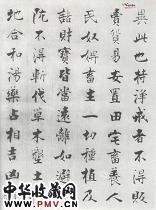 異此也持淨戒者不得販
賣貿易安置田宅畜養人
民奴婢畜生一切種植及
諸財寶皆當遠離如避
坑不得斬伐草木墾土
地合和湯藥占相吉凶
中华收藏网
WWW.SOCANG.COM